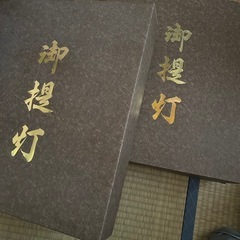 御提灯
御提灯